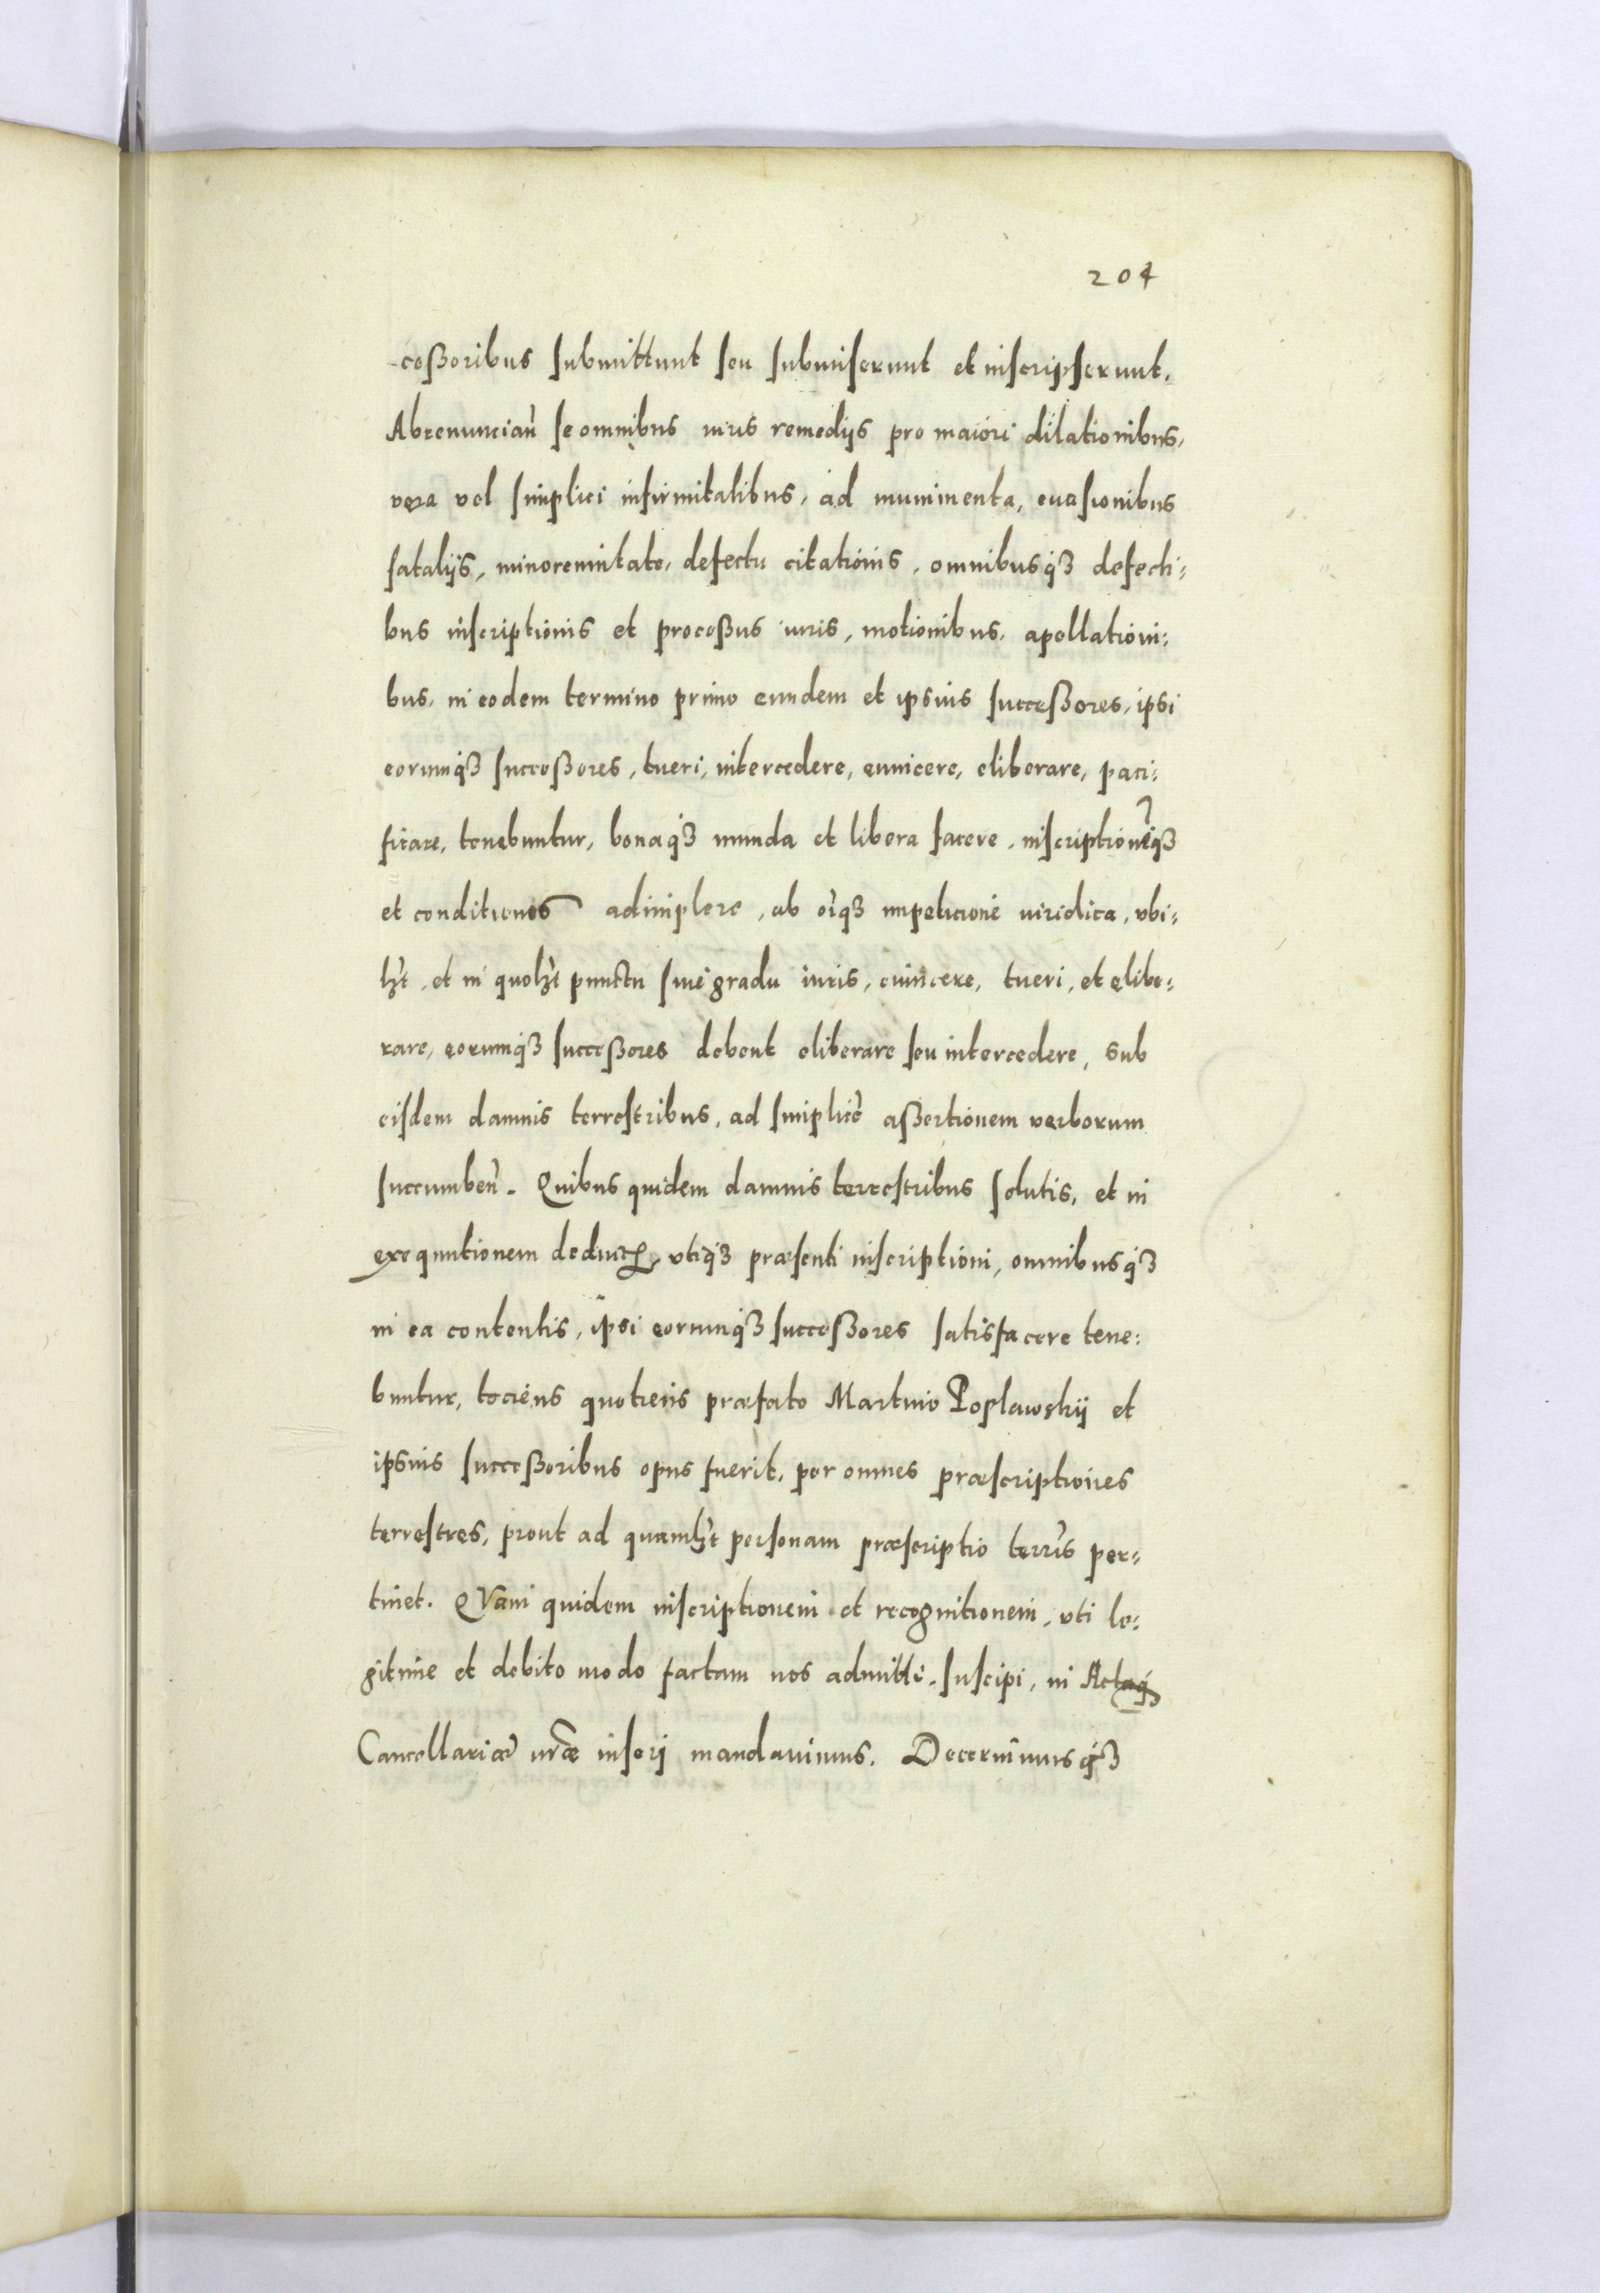 204
-ceßoribus submittunt seu submiserunt et inscripserunt.
Abrenuncian̄ se omnibus iuris remedijs pro maiori dilationibus,
vera vel simplici infirmitatibus, ad munimenta, euasionibus
fatalijs, minorennitate, defectu citationis, omnibusqȝ defecti:
bus inscriptionis et proceßus iuris, motionibus, apellationi:
bus, in eodem termino primo eundem et ipsius succeßores, ipsi
eorumqȝ succeßores, tueri, intercedere, euincere, eliberare, paci:
ficare, tenebuntur, bonaqȝ munda et libera facere, inscriptioneqȝ
et conditiones adimplere, ab oīqȝ impeticione iuridica, vbi:
lꝫt, et in quolꝫt punctu siue gradu iuris, euincere, tueri, et elibe:
rare, eorumqȝ succeßores debent eliberare seu intercedere, sub
eisdem damnis terrestribus, ad simplicē aßertionem verborum
succumben̄. Quibus quidem damnis terrestribus solutis, et in
exequutionem deductꝭ, vtiqȝ præsenti inscriptioni, omnibusqȝ
in ea contentis, ipsi eorumqȝ succeßores satisfacere tene:
buntur, tociens quotiens præfato Martino Poplawskij et
ipsius succeßoribus opus fuerit, per omnes præscriptiones
terrestres, prout ad quamlꝫt personam præscriptio terrīs per:
tinet. QVam quidem inscriptionem et recognitionem, vti le:
gitime et debito modo factam nos admitti, suscipi, in Actaqȝ
Cancellariæ nr̄æ inserj mandauimus. Decernimusqȝ